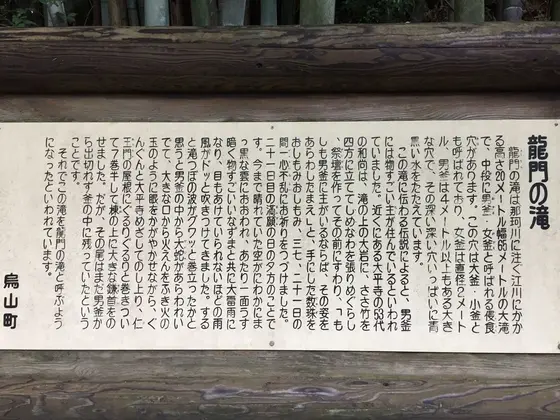 龍門の滝
龍門の滝は那珂川に注ぐ江川にかか
る高さ20メートル幅65メートルの大滝
で、中段に男釜、女釜と呼ばれる侵食
穴があります。この穴は大釜・小釜と
も呼ばれており、女釜は直径2メート
ル、男釜は4メートル以上もある大き
な穴で、その深い深い穴いっぱいに青
黒い水をたたえています。
この滝に伝わる伝説によると、男釜
には物すごい主が住んでいるといわれ
ていました。近くにある太平寺の53代
の和尚は、滝の上の大岩に、ささ竹を
四方に立てしめなわを張りめぐらし
祭壇を作ってその前にすわり、「も
しも男釜に主がいるならば、その姿を
あらわしたまえ」と、手にした数珠を
おしもみおしもみ、三七、二十一日の
間一心不乱にお祈りをつづけました。
二十一日目の満願の日の夕方のことで
す。今まで晴れていた空がにわかにま
っ黒な雲におおわれ、あたり一面うす
暗く物すごいいなずまと共に大雷雨に
なり、目もあけていられないほどの雨
風がドッと吹きつけてきました。する
と滝つぼの波がグワッと巻立ったかと
思うと男釜の中から大蛇があらわれい
でて、大きな口から火えんをふき火の
玉のように眼をかがやかせながら、ぐ
んぐんと太平寺めざしてのし上り、仁
王門の屋根をぐるりぐるりと巻きつい
て7巻半して棟の上に大きな鎌首をの
せました。だが、その尾はまだ男釜か
ら出切れず釜の中に残っていたという
ことです。
それでこの滝を龍門の滝と呼ぶよう
になったといわれています。
烏山町